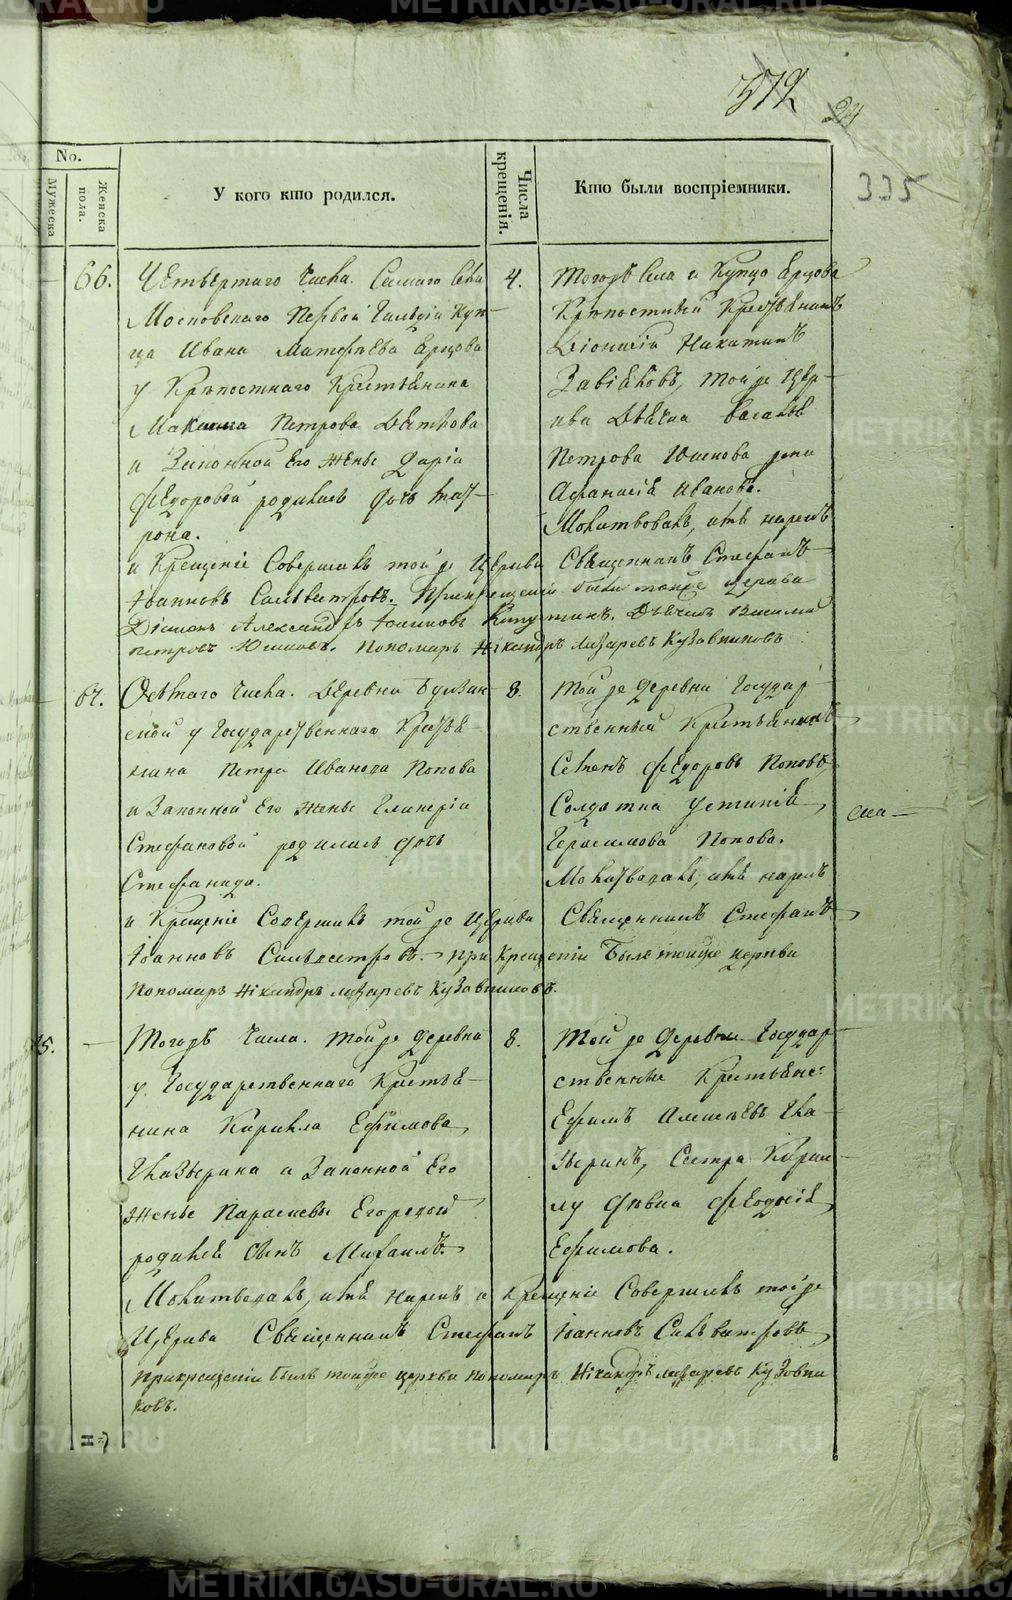 372
24
335
No.
Мужеска
пола.
Женска
У кого кто родился.
Числа крещенія.
Кто были воспріемники.
66.
Четвертаго числа. Самаго села
Московскаго Первой Гильдіи Куп-
ца Ивана Матфѣева Ярцова
у Крѣпостнаго Крестьянина
Максима Петрова
и Законной Его Женѣ Даріи
Ѳедоровой родилась дочь Мат-
рона.
4.
Тогожъ села и Купца Ярцова
Крѣпостный Крестьянинъ
Діонисій Никитинъ
той же Цер-
кви Дьячка Василья
Петрова Юшкова жена
Афанасія Иванова.
Молитвовалъ, имя нарекъ
и Крещеніе Совершилъ той же Церкви Священникъ Стефанъ
Іоанновъ Сильвестровъ. При крещеніи были тойже церкви
Діаконъ Александръ Іоанновъ Дьячекъ Василій
Петровъ Юшковъ. Пономарь Никандръ Лазаревъ Кузовниковъ
67.
Осьмаго числа. Деревни
у Государственнаго Крестья-
нина Петра Иванова Попова
и Законной Его Женѣ Гликеріи
Стефановой родилась дочь
Стефанида.
8.
Той же Деревни Государ-
ственный Крестьянинъ
Семенъ Ѳедоровъ Поповъ
Солдатка Устинія
Герасимова Попова.
Молитвовалъ, имя нарекъ
и Крещеніе Совершилъ той же Церкви Священникъ Стефанъ
Іоанновъ Сильвестровъ. При Крещеніи былъ тойже церкви
Пономарь Никандръ Лазаревъ Кузовниковъ.
75.
Тогожъ Числа. Той же Деревни
у Государственнаго Крестья-
нина Кирилла Ефимова
и Законной Его
Женѣ Параскевы Егоровой
родился сынъ Михаилъ.
8.
Той же Деревни Государ-
ственные Крестьяне:
Ефимъ Алексѣевъ
Сестра Кирил-
лу дѣвка Ѳеодосія
Ефимова.
Молитвовалъ, имя нарекъ и Крещеніе Совершилъ той же
Церкви Священникъ Стефанъ Іоанновъ Сильвестровъ
При крещеніи былъ тойже церкви пономарь Никандръ Лазаревъ Кузовни
ковъ.
METRIKI.GASO-URAL.RU